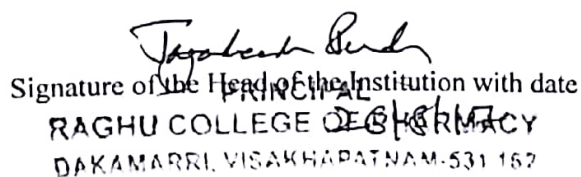 Signature of the Head of the Institution with date
PRINCIPAL
RAGHU COLLEGE OF PHARMACY
DAKAMARRI, VISAKHAPATNAM-531 162